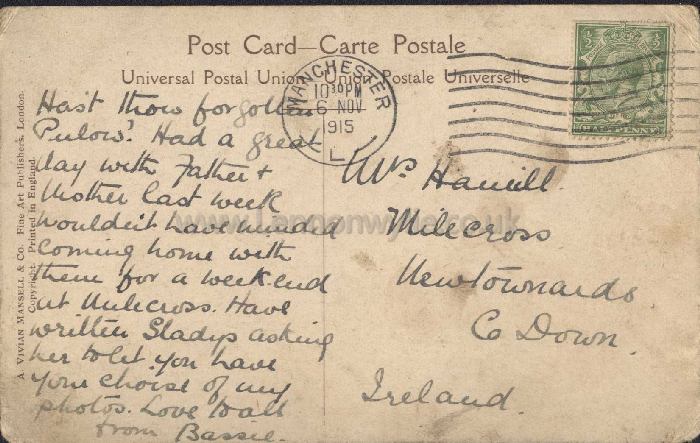 Post Card—Carte Postale
Universal Postal Union Union Postale Universelle
MANCHESTER
10 30 PM
6 NOV
1915
L
HALFPENNY
A VIVIAN MANSELL & CO. Fine Art Publishers, London.
Copyright. Printed in England.
Hast thou forgotten
Had a great
day with Father +
Mother last week
wouldn't have minded
coming home with
them for a weekend
at Milecross. Have
written Gladys asking
her to let you have
your choise of my
photos. Love to all
from Bassie.
Mrs Hamill.
Milecross
Newtownards
Co Down.
Ireland.
www.Lennonwylie.co.uk